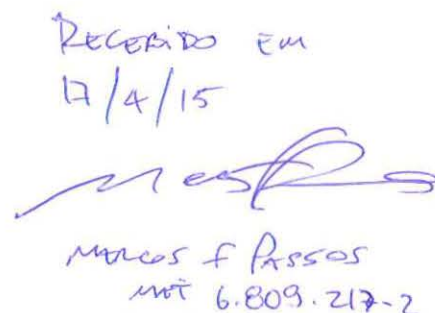 RECEBIDO EM
17/4/15
MARCOS F PASSOS
MAT 6.809.217-2